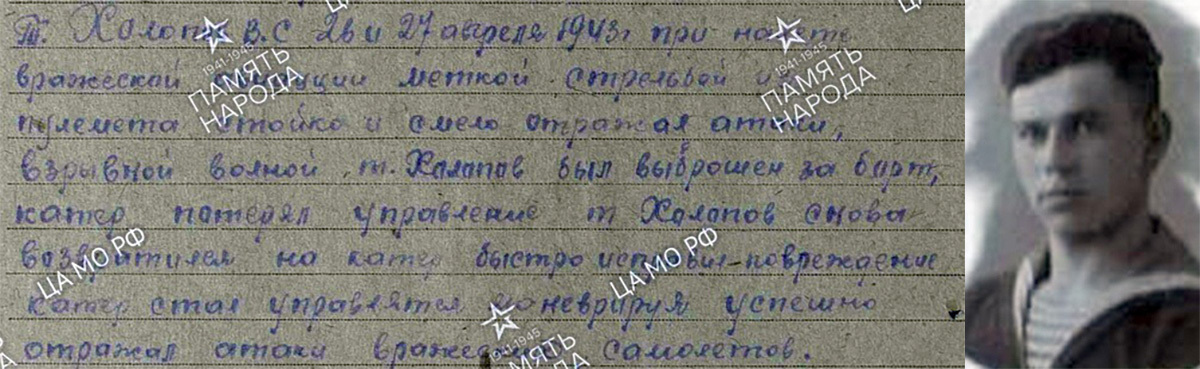 Т. Халопов В.С 26 и 27 апреля 1943г при налете
вражеской авиации меткой стрельбой из
пулемета стойко и смело отражал атаки,
взрывной волной т. Халапов был выброшен за борт,
катер потерял управление т Халапов снова
возвратился на катер быстро исправил повреждение
катер стал управлятся маневрируя успешно
отражал атаки вражеских самолетов.
1941-1945
ПАМЯТЬ
НАРОДА
1941-1945
ПАМЯТЬ
НАРОДА
ЦА МО РФ
ЦА МО РФ
1941-1945
ПАМЯТЬ
НАРОДА